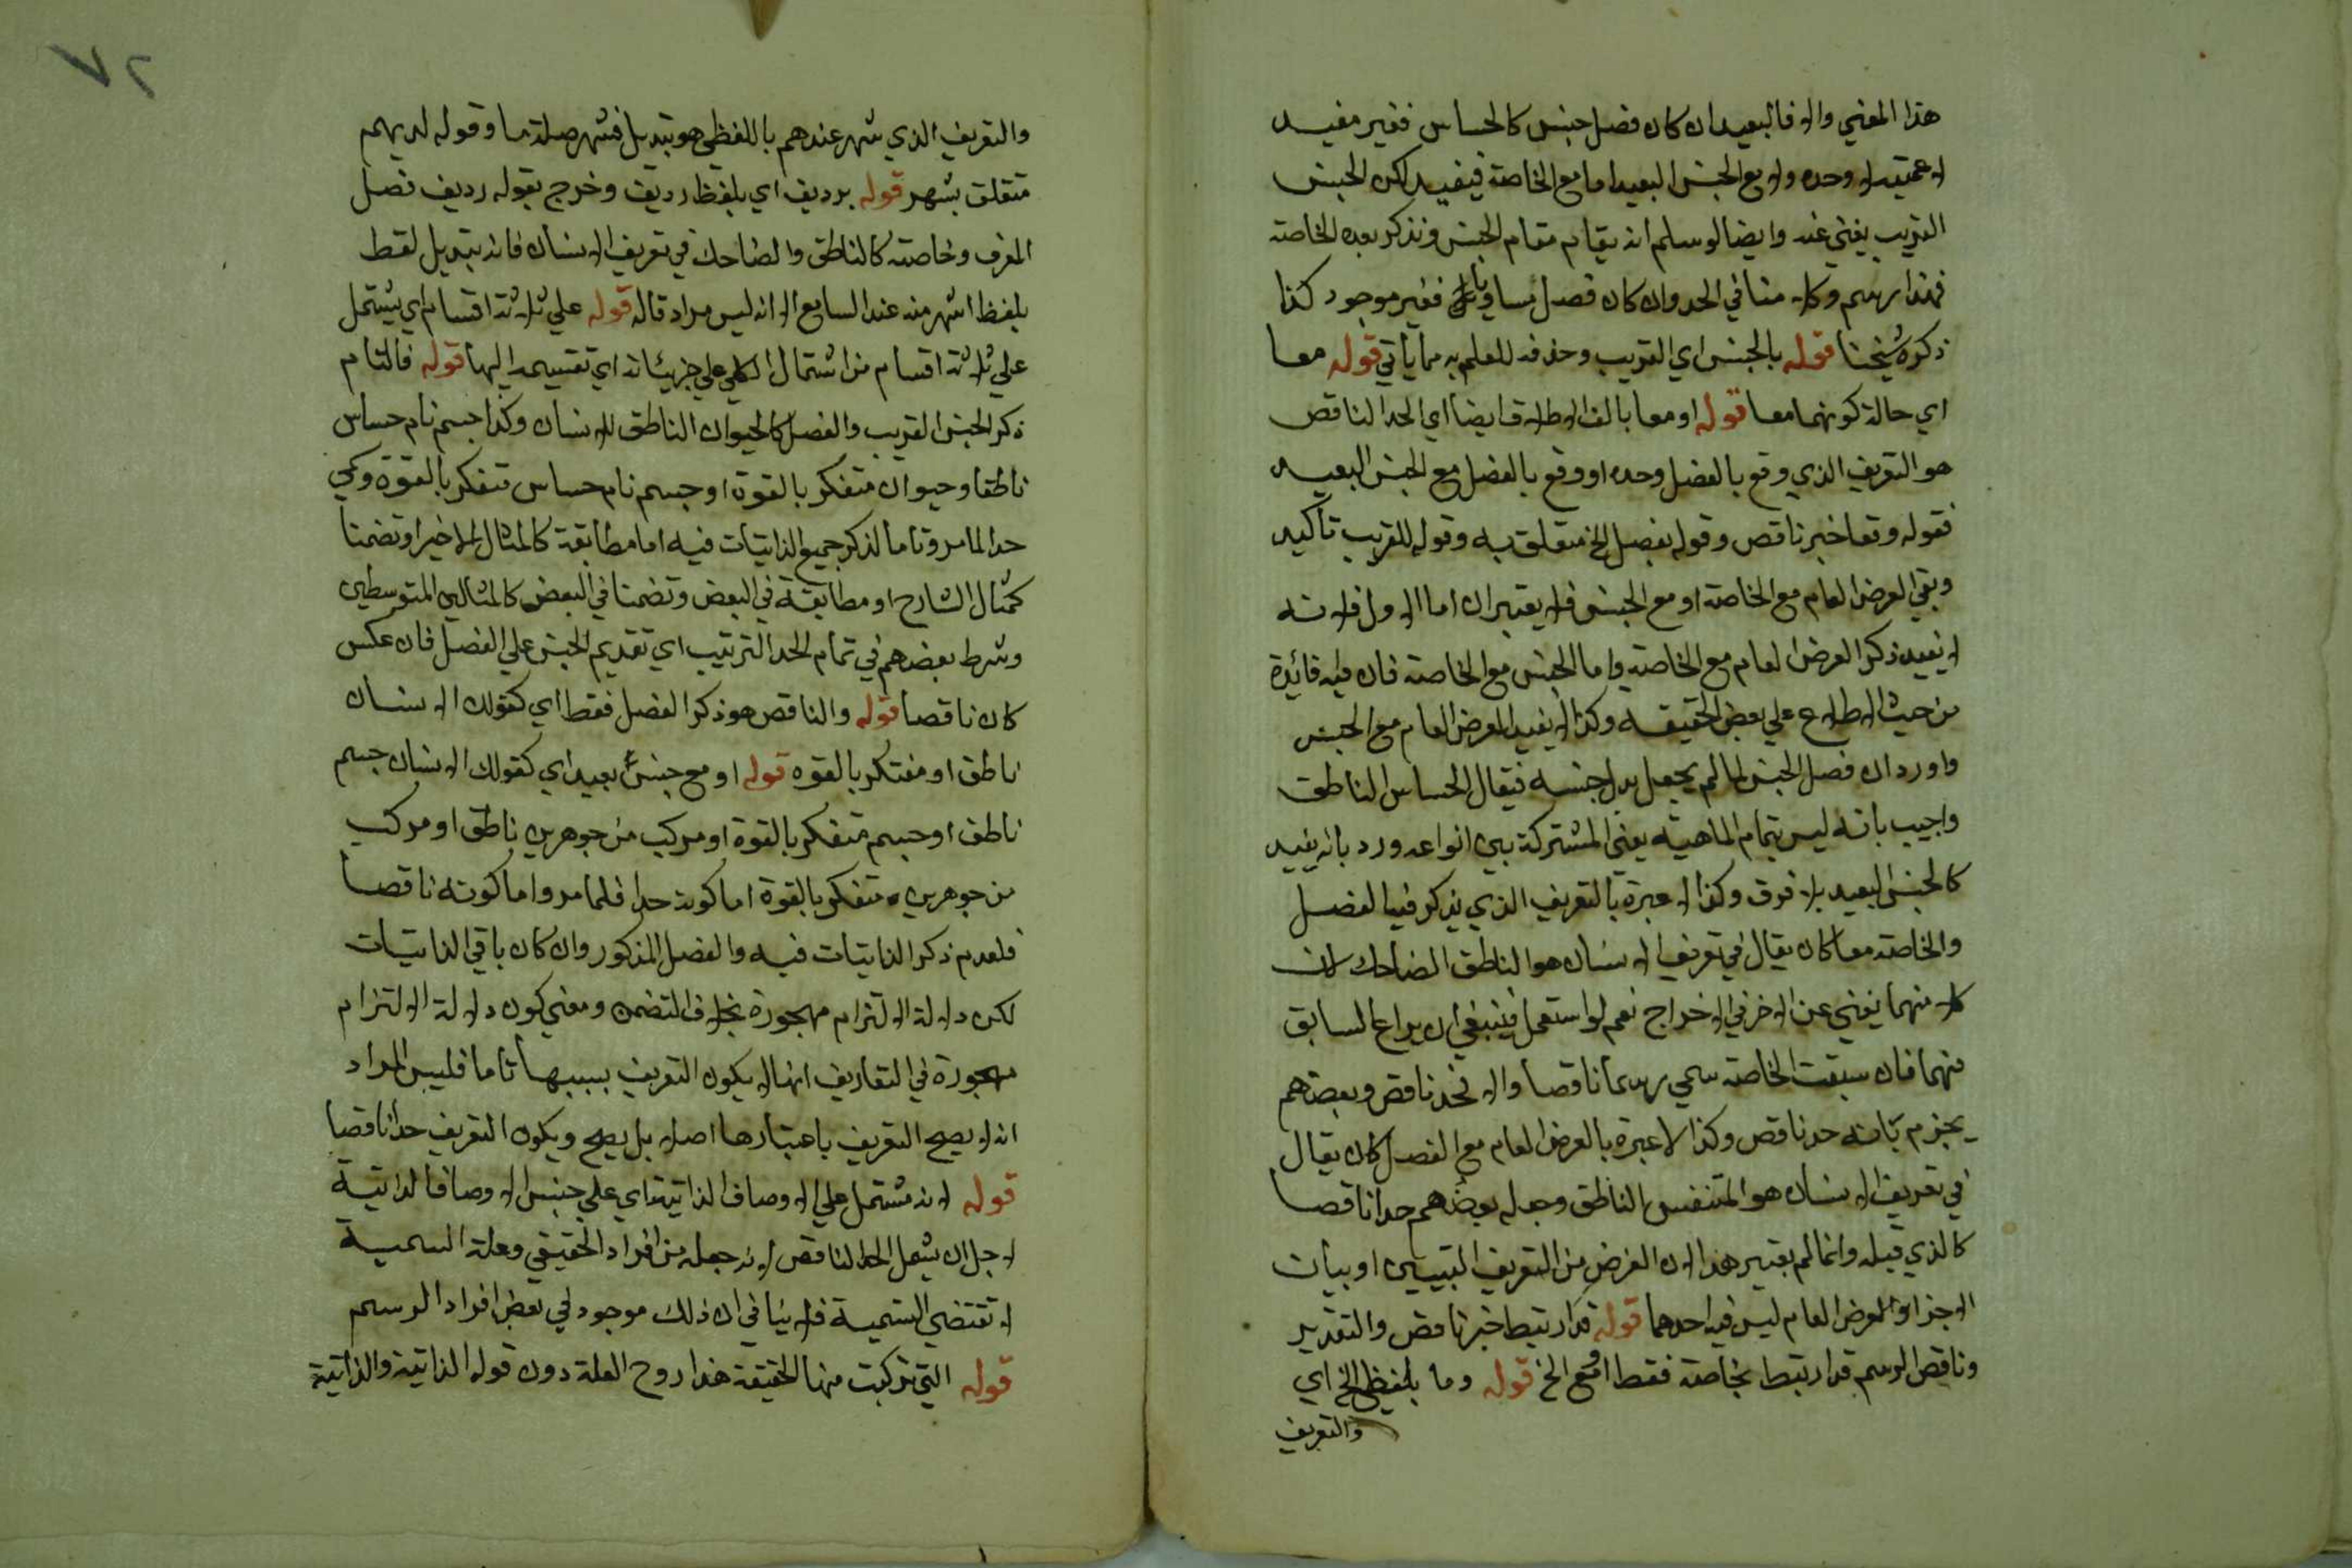 هذا المعني والا فالبعيد ان كان فصل جنس كالحساس فغير مفيد
لا عمتيه لا وحده ولا مع الجنس البعيد اما مع الخاصة فيفيد لكن الجنس
القريب يغني عنه وايضا لو سلم انه يقام مقام الجنس ونذكر بعده الخاصة
فهذا رسم وكلا منا في الحد وان كان فصل مساويا فغير موجود كذا
ذكره شيخنا قوله بالجنس اي القريب وحذفه للعلم به مما يأتي قوله معا
اي حالة كونهما معا قوله او معا بالف الاطلاق ايضا اي الحد الناقص
هو التعريف الذي وقع بالفصل وحده او وقع بالفصل مع الجنس البعيد
فقوله وقعا خبر ناقص وقوله بفصل الخ متعلق به وقوله للقريب تأكيد
وبقي العرض العام مع الخاصة او مع الجنس فلا يعتبران اما الاول فلانه
لا يفيد ذكر العرض العام مع الخاصة واما الجنس مع الخاصة فان فيه فائدة
من حيث الاطلاع علي بعض الحقيقة وكذا لا يفيد العرض العام مع الجنس
واورد ان فصل الجنس لما لم يجعل بدل جنسه فيقال الحساس الناطق
واجيب بانه ليس بتمام الماهية يعني المشتركة بين انواعه ورد بانه يفيد
كالجنس البعيد بلا فرق وكذا لا عبرة بالتعريف الذي يذكر فيه الفصل
والخاصة معا كان يقال في تعريف الانسان هو الناطق الضاحك لان
كلا منهما يغني عن الاخر في الاخراج نعم لو استعمل فينبغي ان يراعا السابق
منهما فان سبقت الخاصة سمي رسما ناقصا والا فحد ناقص وبعضهم
يجزم بانه حد ناقص وكذا لا عبرة بالعرض العام مع الفصل كان يقال
في تعريف الانسان هو المتنفس الناطق وجعله بعضهم حدا ناقصا
كالذي قبله وانما لم يعتبر هذا لان الغرض من التعريف التبيين او بيان
الاجزا والعرض العام ليس فيه احدهما قوله قد ارتبط خبر ناقص والتقدير
وناقص الرسم قد ارتبط بخاصة فقط او مع الخ قوله وما بلفظي الخ اي
والتعريف
٧٢
والتعريف الذي شهر عندهم باللفظي هو تبديل فشهر صلة ما وقوله لديهم
متعلق بشهر قوله برديف اي بلفظ رديف وخرج بقوله رديف فصل
المعرف وخاصته كالناطق والضاحك في تعريف الانسان فانه تبديل لفظ
بلفظ اشهر منه عند السامع الا انه ليس مراد قاله قوله علي ثلاثة اقسام اي يشتمل
علي ثلاثة اقسام من اشتمال الكلي علي جزيئاته اي تقسيمه اليها قوله فالتام
ذكر الجنس القريب والفصل كالحيوان الناطق للانسان وكذا جسم نام حساس
ناطق او حيوان متفكر بالقوة او جسم نام حساس متفكر بالقوة وسمي
حدا لما مر وتاما لذكر جميع الذاتيات فيه اما مطابقة كالمثال الاخير او تضمنا
كمثال الشارح او مطابقة في البعض وتضمنا في البعض كالمثالين المتوسطين
وشرط بعضهم في تمام الحد الترتيب اي تقديم الجنس علي الفصل فان عكس
كان ناقصا قوله والناقص هو ذكر الفصل فقط اي كقولك الانسان
ناطق او مفتكر بالقوه قوله او مع جنس بعيد اي كقولك الانسان جسم
ناطق او جسم متفكر بالقوة او مركب من جوهرين ناطق او مركب
من جوهرين متفكر بالقوة اما كونه حدا فلما مر واما كونه ناقصا
فلعدم ذكر الذاتيات فيه والفصل المذكور وان كان باقي الذاتيات
لكن دلالة الالتزام مهجورة بخلاف التضمن ومعني كون دلالة الالتزام
مهجورة في التعاريف انها لا يكون التعريف بسببها تاما فليس المراد
انه لا يصح التعريف باعتبارها اصلا بل يصح ويكون التعريف حدا ناقصا
قوله لانه مشتمل علي الاوصاف الذاتية اي علي جنس الاوصاف الذاتية
لاجل ان يشمل الحد الناقص لانه جعله من افراد الحقيقي وعلة التسمية
لا تقتضي التسمية فلا ينافي ان ذلك موجود في بعض افراد الرسم
قوله التي تركبت منها الحقيقة هذا روح العلة دون قوله الذاتية والذاتية